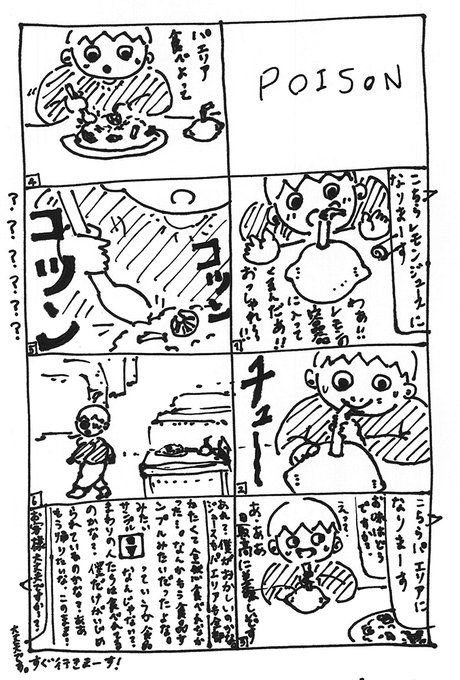 POISON
こちらレモンジュースに
なりまーす
わぁ!!
レモンの
容器
に入って
くるんだぁ!!
おっしゃれー!!
1
チュー
2
こちらパエリアに
なりまーす
お味はどう
ですか?
え…?
あ・ああ
最高に美味しいです
3
パエリア
食べよって
4
コツン
コツン
???????
5
6
あれ?僕がおかしいのかな。
ジュースもパエリアも全部
かたくて全然食べれなかっ
た…。なんかもう食品サ
ンプルみたいだったよな。
みたい…っていうか食品
サンプルなんじゃない?
まわりの人たちは食べれてる
のかな?僕だけがいじめ
られているのかな?ああ
もう帰りたいな。このまま…
お客様大丈夫ですか??
大丈夫です。
すぐ行きまーす!